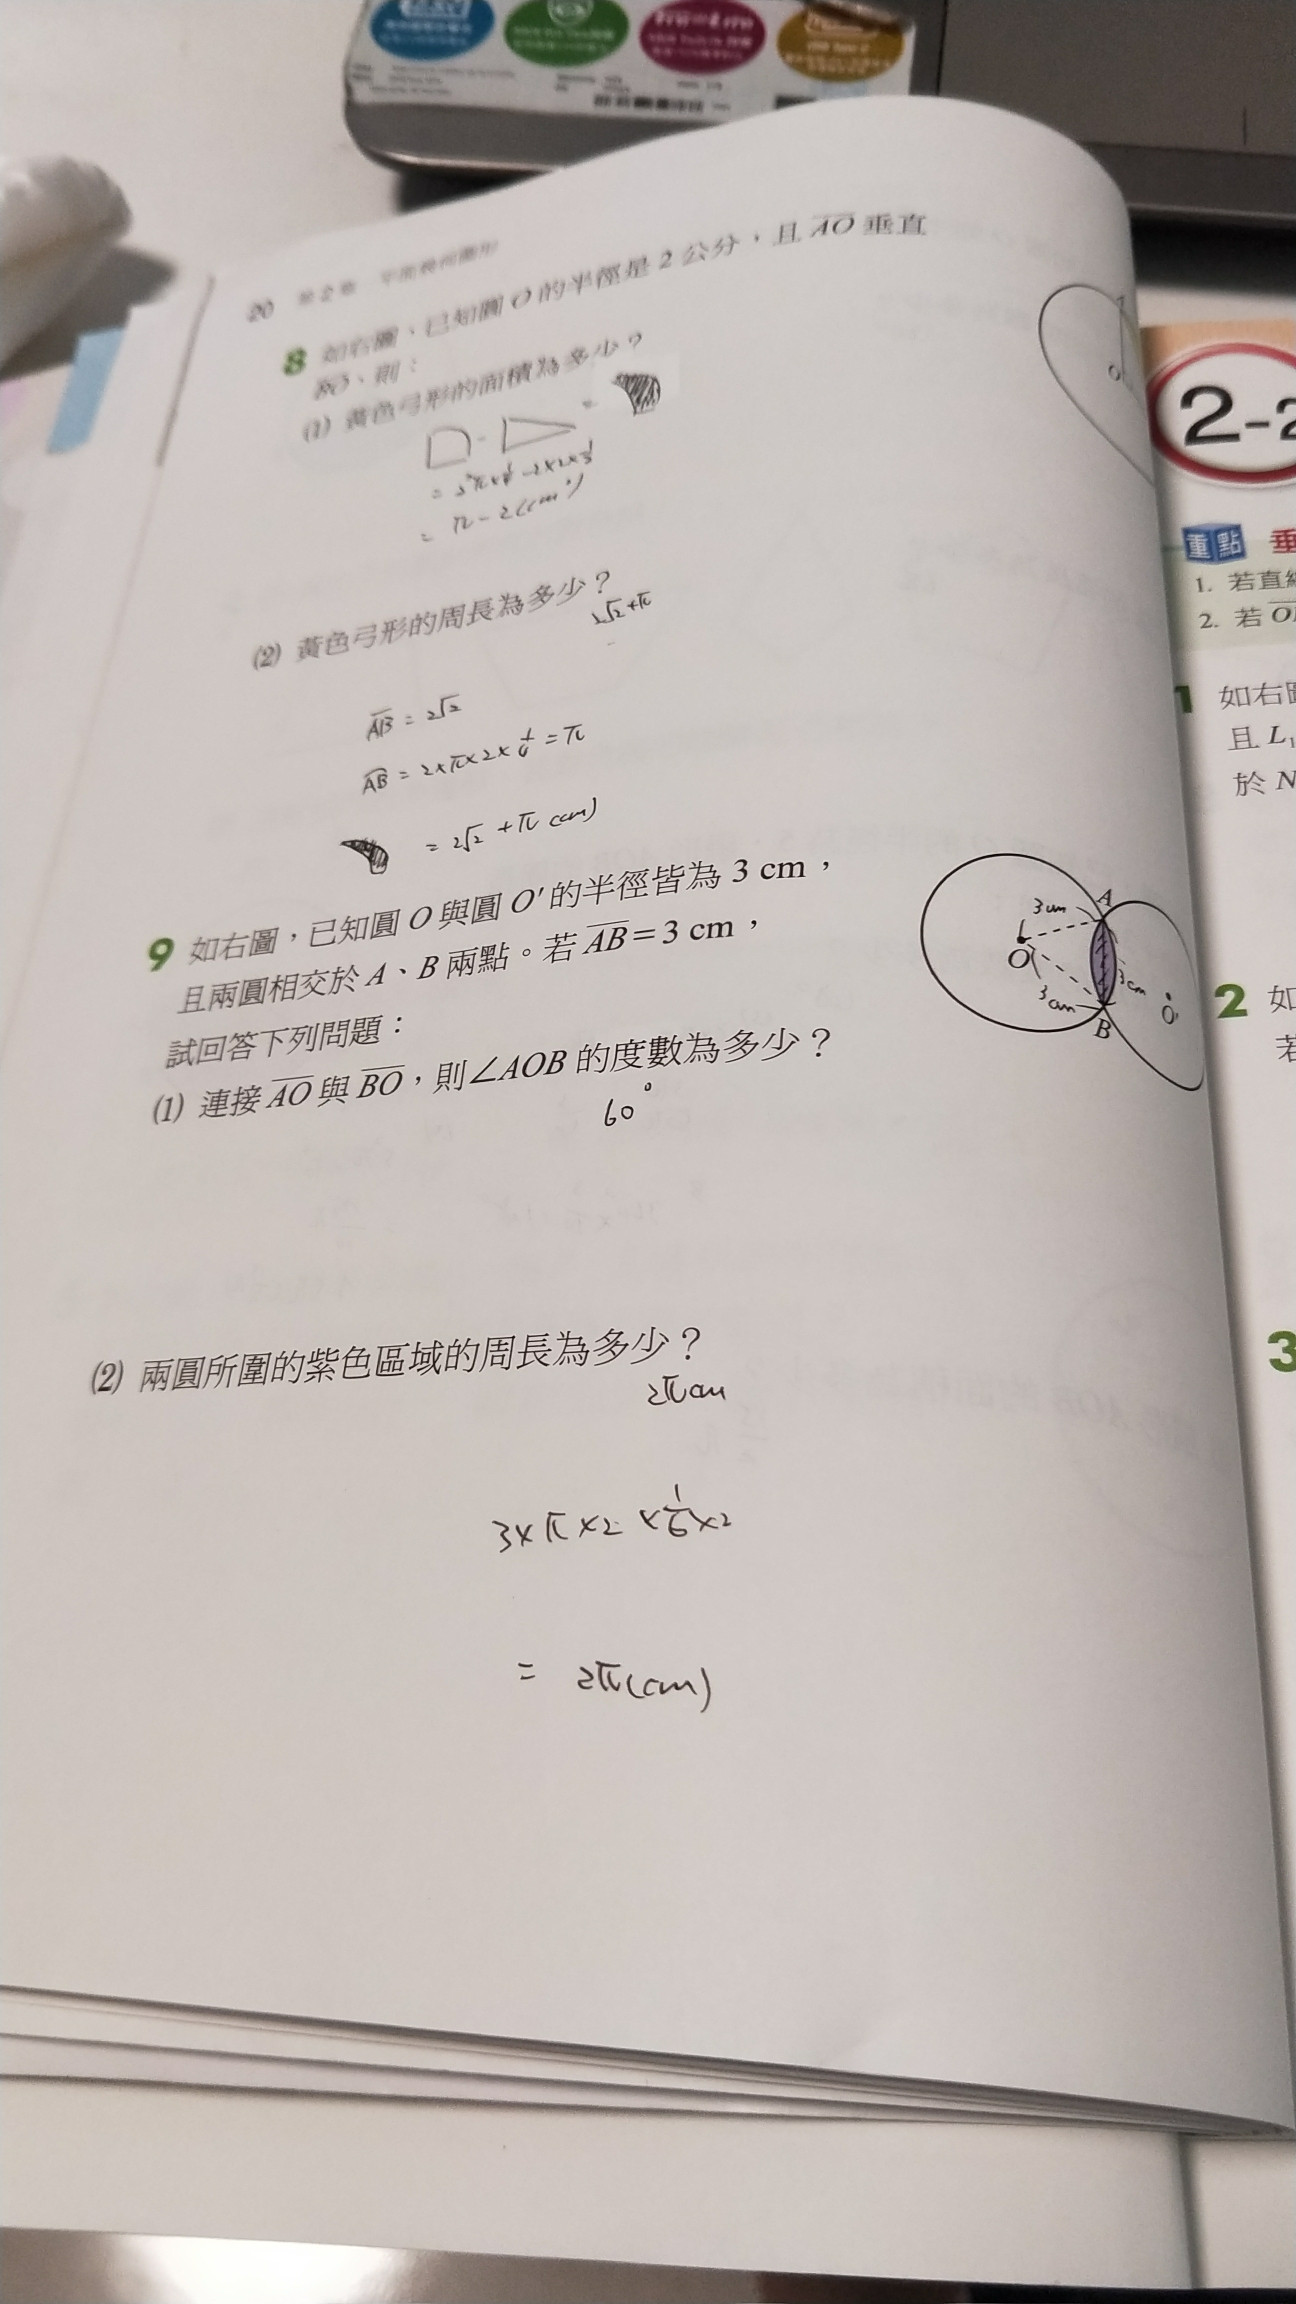 20 第2章 平面幾何圖形
8 如右圖、已知圓O的半徑是2公分,且AO垂直
BO、則:
(1) 黃色弓形的面積為多少?
-
=
= 2²π×¼-2×2×½
= π-2(cm²)
(2) 黃色弓形的周長為多少?
2√2+π
AB = 2√2
AB = 2×π×2×¼=π
= 2√2 +π (cm)
9 如右圖,已知圓O與圓O'的半徑皆為3 cm,
且兩圓相交於A、B兩點。若AB=3 cm,
試回答下列問題:
(1) 連接AO與BO,則∠AOB的度數為多少?
60°
(2) 兩圓所圍的紫色區域的周長為多少?
2πcm
3×π×2×⅙×2
= 2π(cm)
O
A
3cm
O
3cm
3cm
B
O'
2-2
重點 垂
1. 若直線
2. 若
1 如右圖
且L₁
於N
2 如
若
3